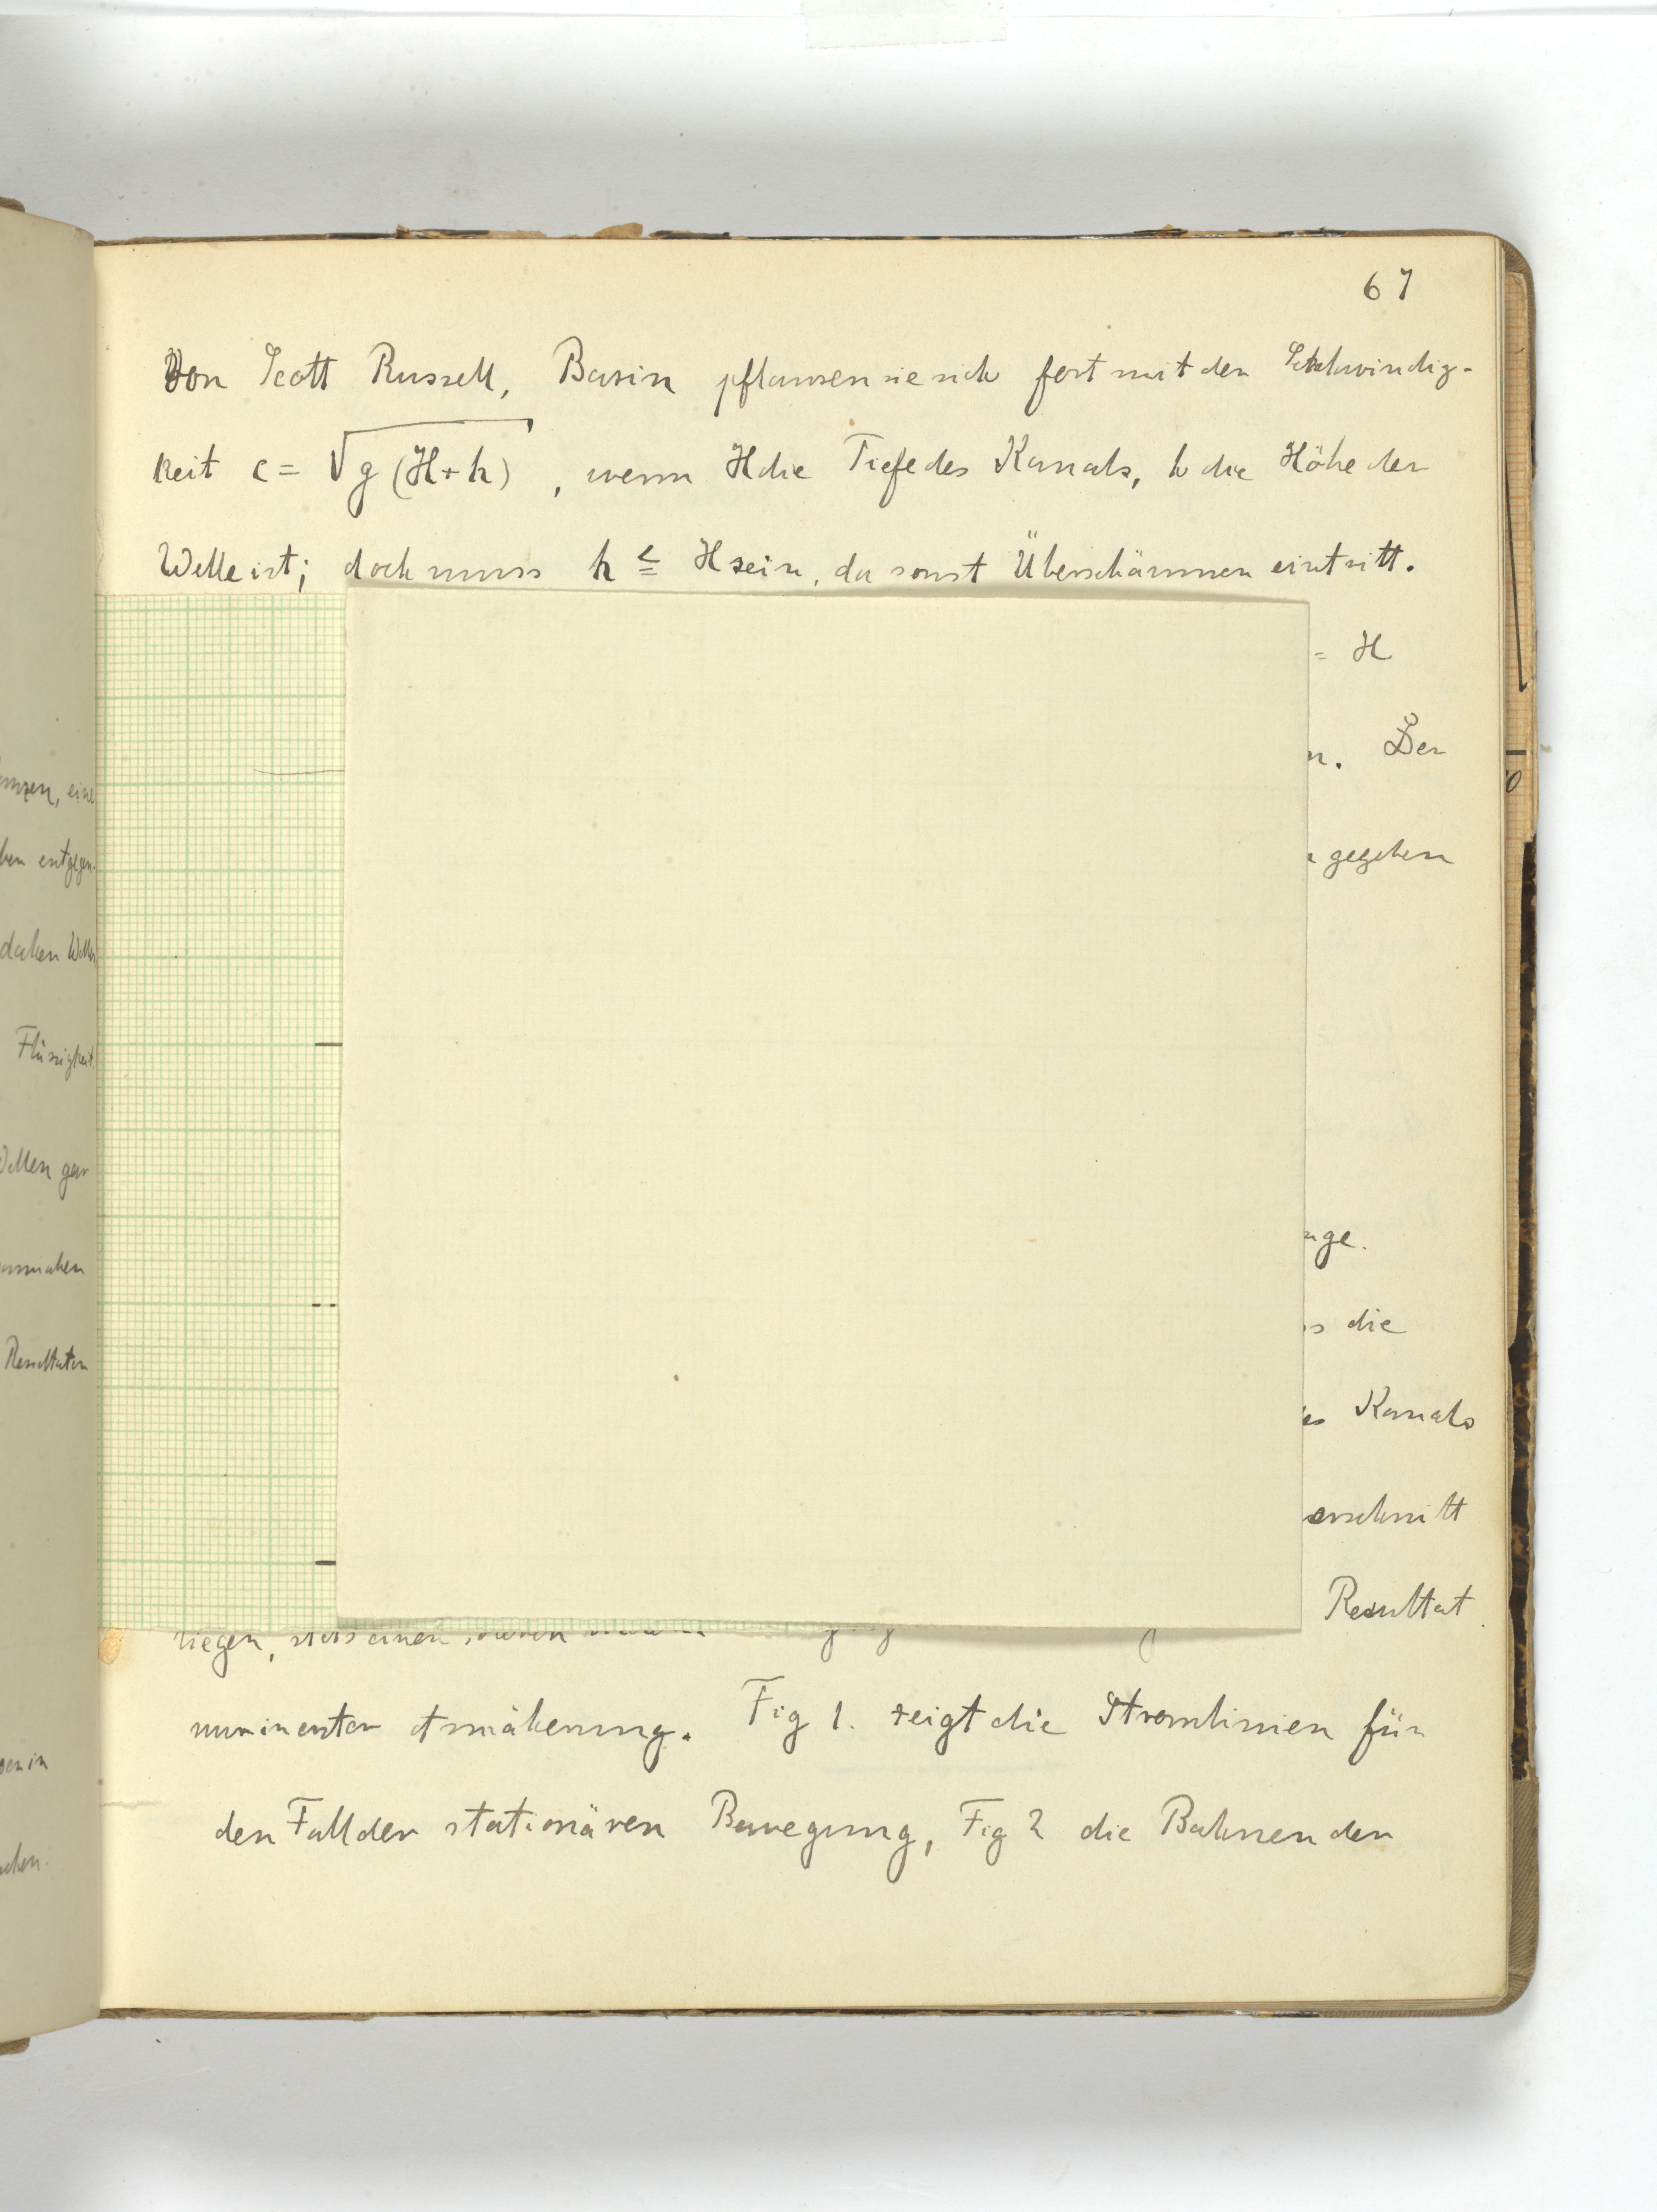 67
Von Scott Russell, Basin pflanzen sie sich fort mit der Schwindig-
keit c = √g(H+h), wenn H die Tiefe des Kanals, h die Höhe der
Welle ist; doch muss h ≦ H sein, da sonst Überschäumen eintritt.
= H
n. Der
gegeben
nge.
s die
es Kanals
erschnitt
Resultat
liegen, stets einen
nur in erster Annäherung. Fig 1. zeigt die Stromlinien für
den Fall der stationären Bewegung, Fig 2 die Bahnen der
eine
ben entgegen-
daher Wellen
Flüssigkeit
Wellen gar
Resultaten